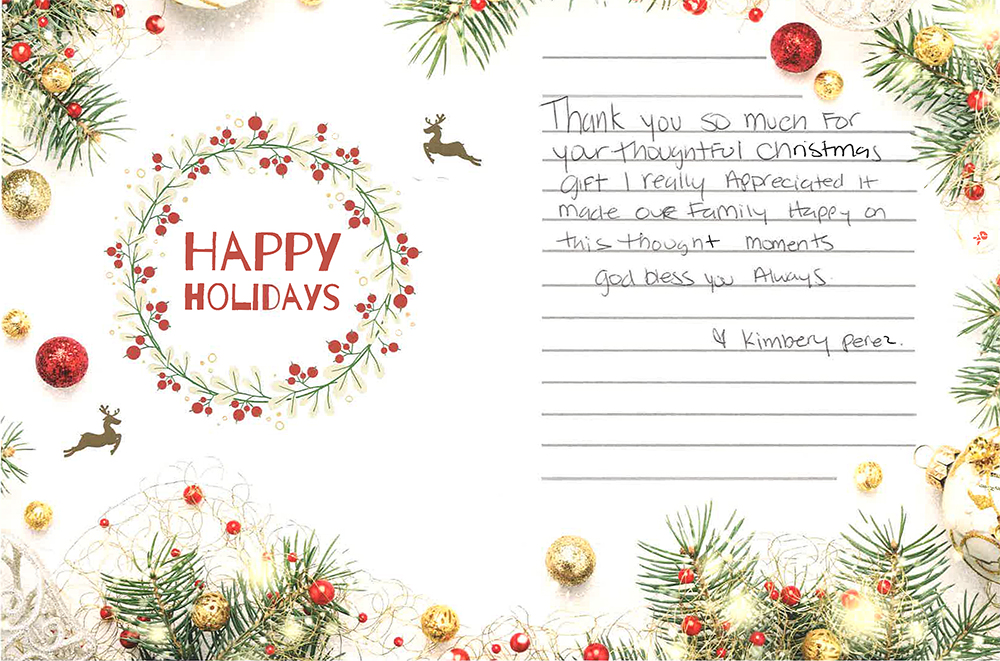 HAPPY
HOLIDAYS
Thank you so much For
your thoughtful Christmas
gift I really Appreciated It
made our Family Happy on
this thought moments
god bless you Always.
Kimbery perez.